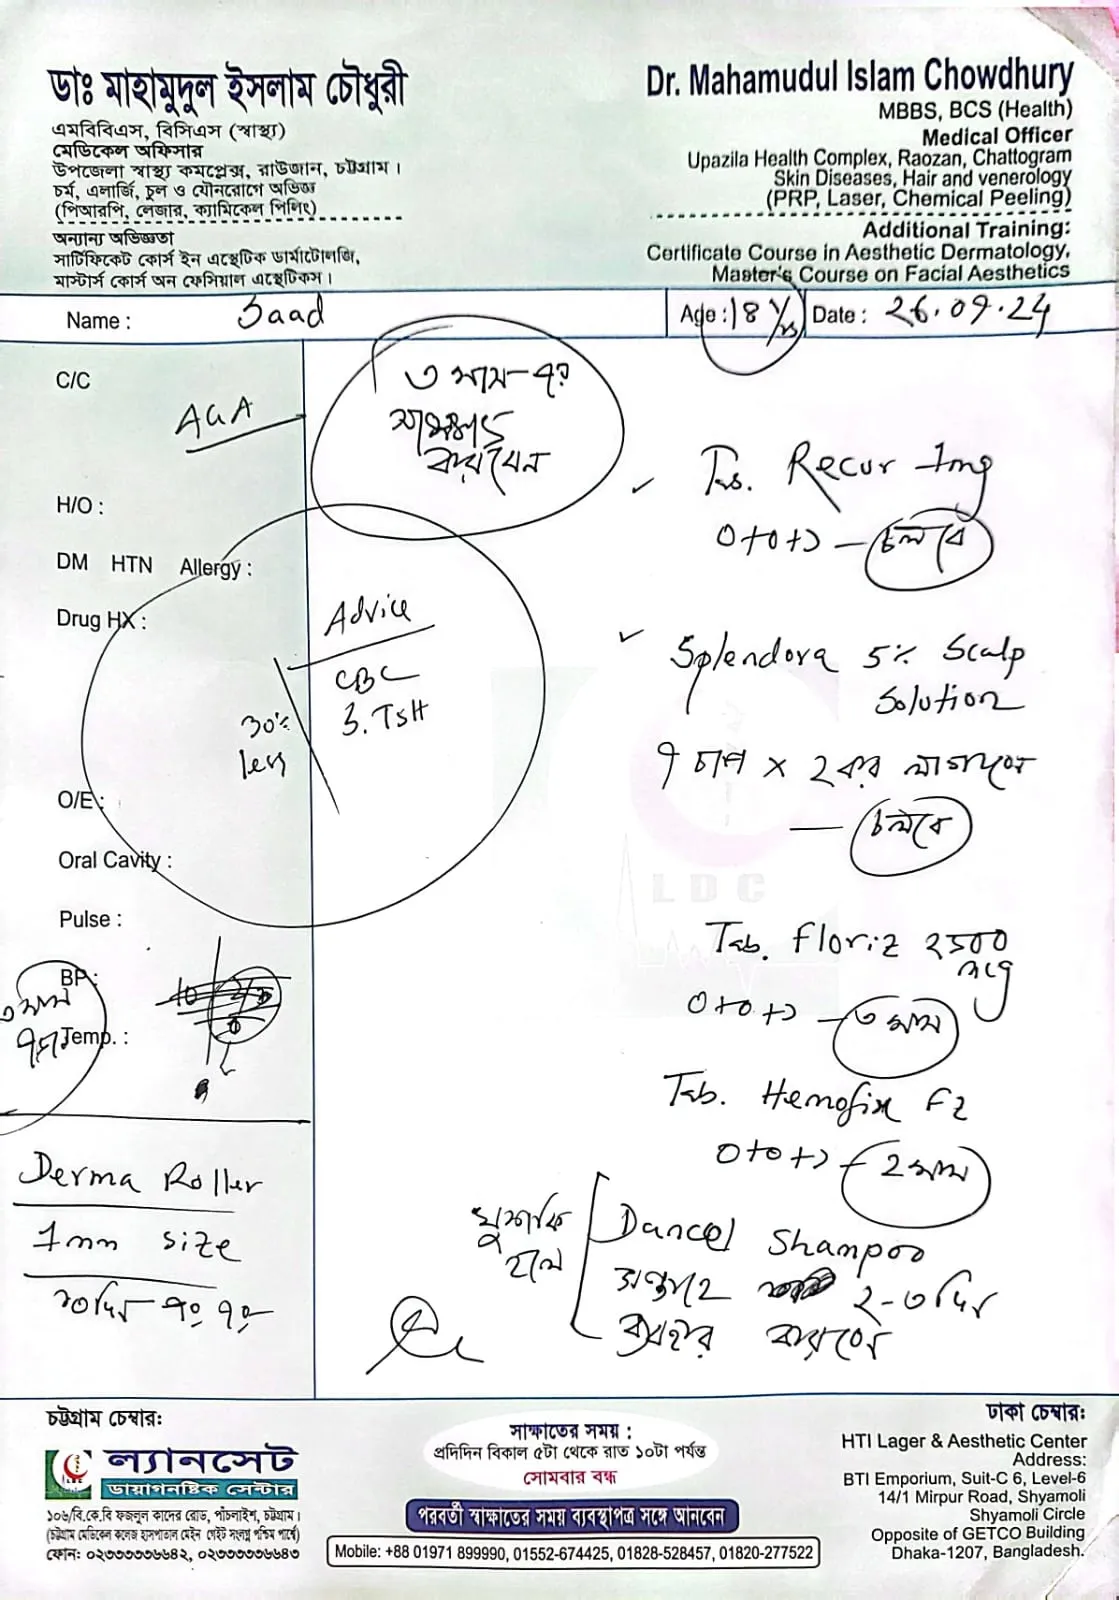 ডাঃ মাহামুদুল ইসলাম চৌধুরী
এমবিবিএস, বিসিএস (স্বাস্থ্য)
মেডিকেল অফিসার
উপজেলা স্বাস্থ্য কমপ্লেক্স, রাউজান, চট্টগ্রাম।
চর্ম, এলার্জি, চুল ও যৌনরোগে অভিজ্ঞ
(পিআরপি, লেজার, ক্যামিকেল পিলিং)
অন্যান্য অভিজ্ঞতা
সার্টিফিকেট কোর্স ইন এস্থেটিক ডার্মাটোলজি,
মাস্টার্স কোর্স অন ফেসিয়াল এস্থেটিকস।
Dr. Mahamudul Islam Chowdhury
MBBS, BCS (Health)
Medical Officer
Upazila Health Complex, Raozan, Chattogram
Skin Diseases, Hair and venerology
(PRP, Laser, Chemical Peeling)
Additional Training:
Certificate Course in Aesthetic Dermatology,
Master's Course on Facial Aesthetics
Name : Saad Age : 18 Yrs Date : 26.09.24
C/C
AGA
H/O :
DM HTN Allergy :
Drug HX :
O/E :
Oral Cavity :
Pulse :
BP :
Temp. :
৩ মাস
পর
Derma Roller
1mm size
১০ দিন পর পর
৩ মাস পর
করবেন
Advice
CBC
S. TSH
30%
less
Tab. Recur 1mg
0+0+১ — চলবে
Splendora 5% Scalp
Solution
৭ চাপ × ২ বার লাগাবেন
— চলবে
Tab. Floriz ২৫০০
mcg
0+0+১ — ৩ মাস
Tab. Hemofix FZ
0+0+১ — ২ মাস
খুশকি
হলে
Dancel Shampoo
সপ্তাহে ২-৩ দিন
ব্যবহার করবেন
LDC
চট্টগ্রাম চেম্বার:
ল্যানসেট
ডায়াগনষ্টিক সেন্টার
১০৬/বি.কে.বি ফজলুল কাদের রোড, পাঁচলাইশ, চট্টগ্রাম।
(চট্টগ্রাম মেডিকেল কলেজ হাসপাতাল মেইন গেইট সংলগ্ন পশ্চিম পার্শ্বে)
ফোন: ০২৩৩৩৩৩৬৬৪২, ০২৩৩৩৩৩৬৬৪৩
সাক্ষাতের সময় :
প্রতিদিন বিকাল ৫টা থেকে রাত ১০টা পর্যন্ত
সোমবার বন্ধ
পরবর্তী স্বাক্ষাতের সময় ব্যবস্থাপত্র সঙ্গে আনবেন
Mobile: +88 01971 899990, 01552-674425, 01828-528457, 01820-277522
ঢাকা চেম্বার:
HTI Lager & Aesthetic Center
Address:
BTI Emporium, Suit-C 6, Level-6
14/1 Mirpur Road, Shyamoli
Shyamoli Circle
Opposite of GETCO Building
Dhaka-1207, Bangladesh.